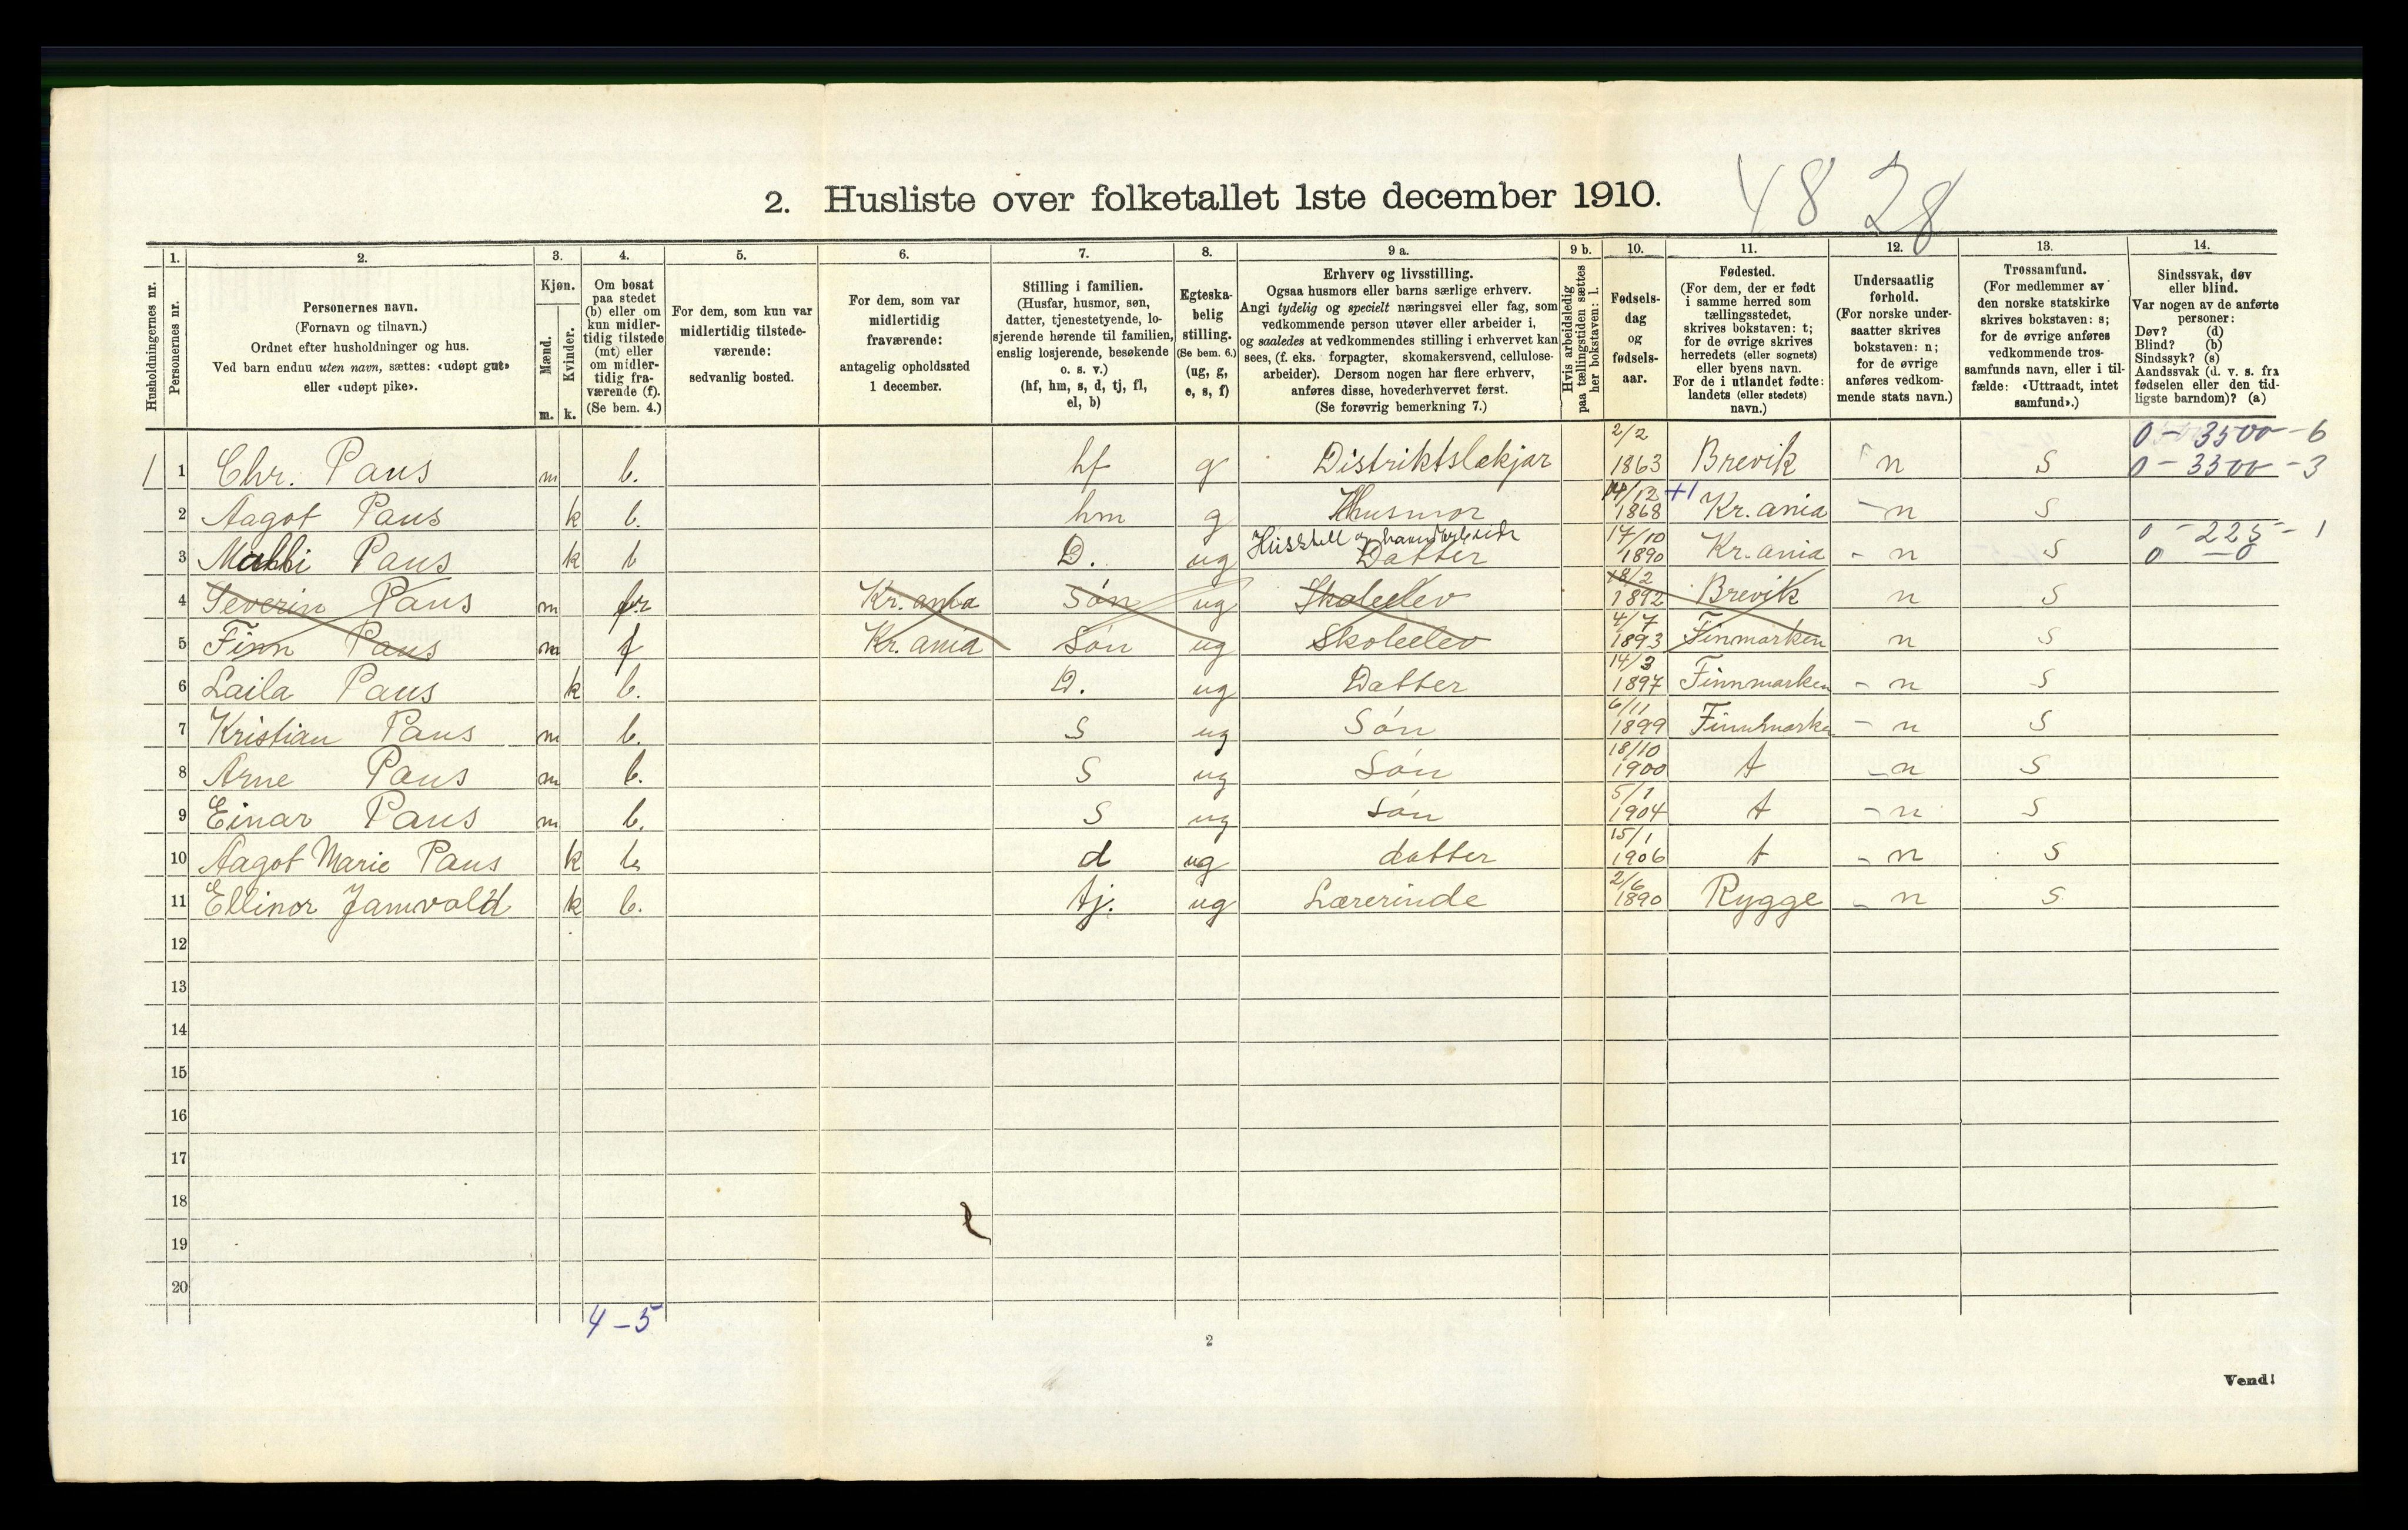 48 28
2. Husliste over folketallet 1ste december 1910.
Husholdningernes nr.
1. Personernes nr.
2. Personernes navn. (Fornavn og tilnavn.) Ordnet efter husholdninger og hus. Ved barn endnu uten navn, sættes: «udøpt gut» eller «udøpt pike».
3. Kjøn. Mænd. m. Kvinder. k.
4. Om bosat paa stedet (b) eller om kun midlertidig tilstede (mt) eller om midlertidig fraværende (f). (Se bem. 4.)
5. For dem, som kun var midlertidig tilstedeværende: sedvanlig bosted.
6. For dem, som var midlertidig fraværende: antagelig opholdssted 1 december.
7. Stilling i familien. (Husfar, husmor, søn, datter, tjenestetyende, losjerende hørende til familien, enslig losjerende, besøkende o. s. v.) (hf, hm, s, d, tj, fl, el, b)
8. Egteskabelig stilling. (Se bem. 6.) (ug, g, e, s, f)
9 a. Erhverv og livsstilling. Ogsaa husmors eller barns særlige erhverv. Angi tydelig og specielt næringsvei eller fag, som vedkommende person utøver eller arbeider i, og saaledes at vedkommendes stilling i erhvervet kan sees, (f. eks. forpagter, skomakersvend, cellulosearbeider). Dersom nogen har flere erhverv, anføres disse, hovederhvervet først. (Se forøvrig bemerkning 7.)
9 b. Hvis arbeidsledig paa tællingstiden sættes her bokstaven: l.
10. Fødselsdag og fødselsaar.
11. Fødested. (For dem, der er født i samme herred som tællingsstedet, skrives bokstaven: t; for de øvrige skrives herredets (eller sognets) eller byens navn. For de i utlandet fødte: landets (eller stedets) navn.)
12. Undersaatlig forhold. (For norske undersaatter skrives bokstaven: n; for de øvrige anføres vedkommende stats navn.)
13. Trossamfund. (For medlemmer av den norske statskirke skrives bokstaven: s; for de øvrige anføres vedkommende trossamfunds navn, eller i tilfælde: «Uttraadt, intet samfund».)
14. Sindssvak, døv eller blind. Var nogen av de anførte personer: Døv? (d) Blind? (b) Sindssyk? (s) Aandssvak (d. v. s. fra fødselen eller den tidligste barndom)? (a)
1 1 Chr. Paus m b. hf g Distriktslækjar 2/2 1863 Brevik n S 0 - 3500 - 6
0 - 3300 - 3
2 Aagot Paus k b. hm g Husmor 14/12 1868 +1 Kr.ania - n S
3 Makki Paus k b D. ug Husstell og haandarbeide Datter 17/10 1890 Kr.ania - n S 0 - 225 - 1
0 - 0
4 Severin Paus m f Kr.ania Søn ug Skoleelev 18/2 1892 Brevik n S
5 Finn Paus m f Kr.ania Søn ug Skoleelev 4/7 1893 Finmarken n S
6 Laila Paus k b. D. ug Datter 14/3 1897 Finnmarken - n S
7 Kristian Paus m b. S ug Søn 6/11 1899 Finnmarken - n S
8 Arne Paus m b. S ug Søn 18/10 1900 t - n S
9 Einar Paus m b. S ug Søn 5/1 1904 t - n S
10 Aagot Marie Paus k b. d ug datter 15/1 1906 t - n S
11 Ellinor Jamvold k b. tj. ug Lærerinde 2/6 1890 Rygge - n S
12
13
14
15
16
17
18
19
20
4 - 5
2
Vend!